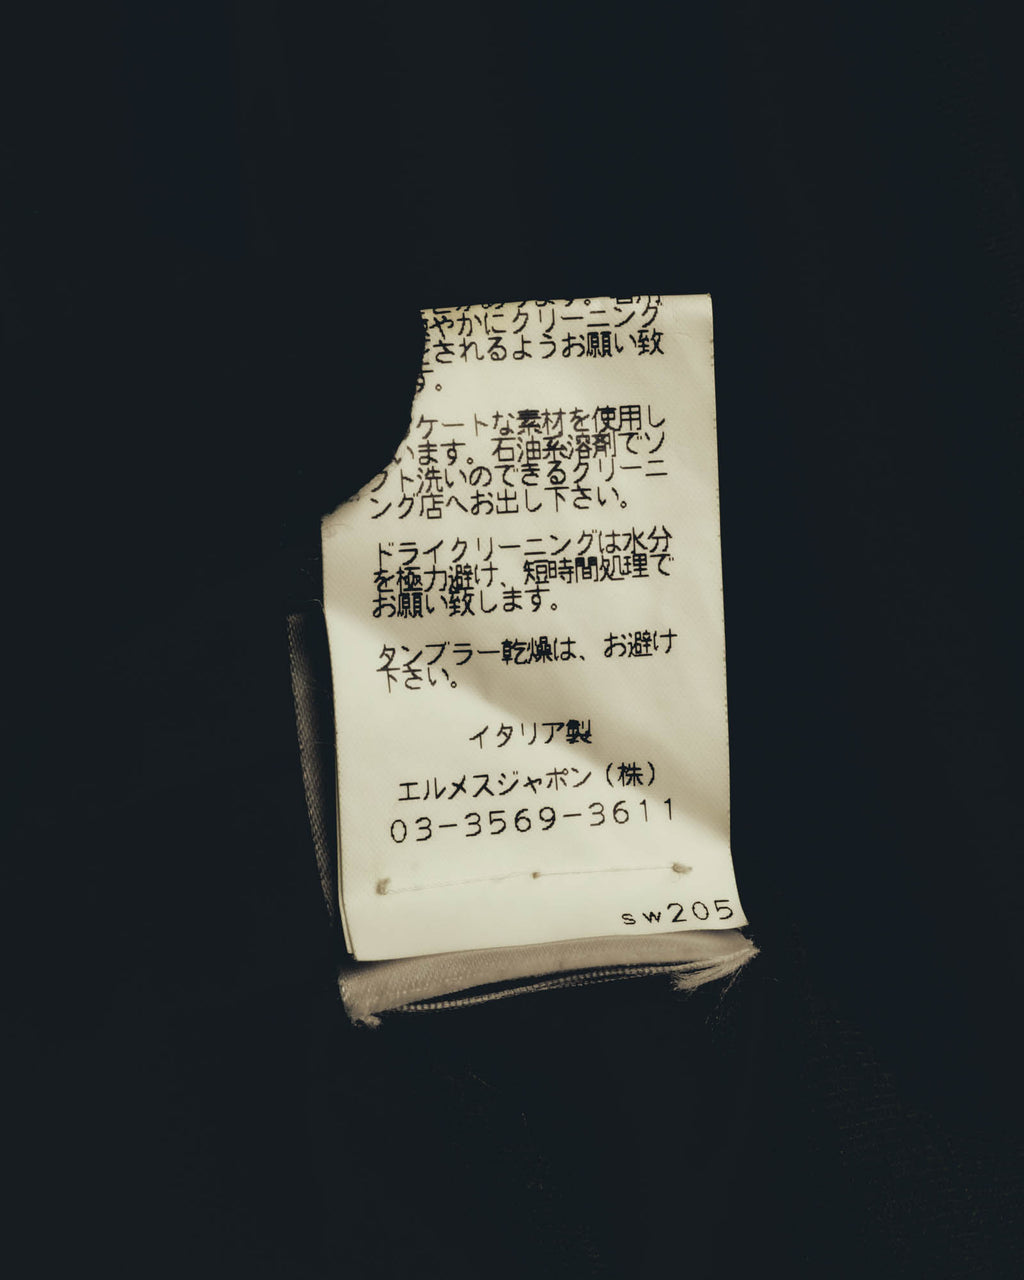 やかにクリーニング
されるようお願い致
す。
ケートな素材を使用し
います。石油系溶剤でソ
フト洗いのできるクリーニ
ング店へお出し下さい。
ドライクリーニングは水分
を極力避け、短時間処理で
お願い致します。
タンブラー乾燥は、お避け
下さい。
イタリア製
エルメスジャポン(株)
03-3569-3611
sw205